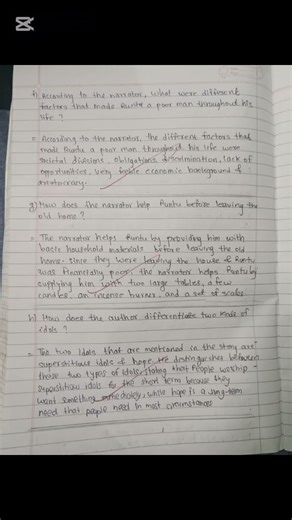 f) According to the narrator, what were different
factors that made Runtu a poor man throughout his
life ?
= According to the narrator, the different factors that
made Runtu a poor man throughout his life were
societal divisions, obligations, discrimination, lack of
opportunities, very feeble economic background &
aristocracy.
g) How does the narrator help Runtu before leaving the
old home ?
= The narrator helps Runtu by providing him with
basic household materials before leaving the old
home. Since they were leaving the house & Runtu
was financially poor, the narrator helps Runtu by
supplying him with two large tables, a few
candles, an incense burner, and a set of scales
h) How does the author differentiate two kinds of
idols ?
= The two idols that are mentioned in the story are
superstitious idols & hope. He distinguishes between
these two types of idols, stating that people worship
superstitious idols for the short term because they
want something immediately, while hope is a long-term
need that people need in most circumstances